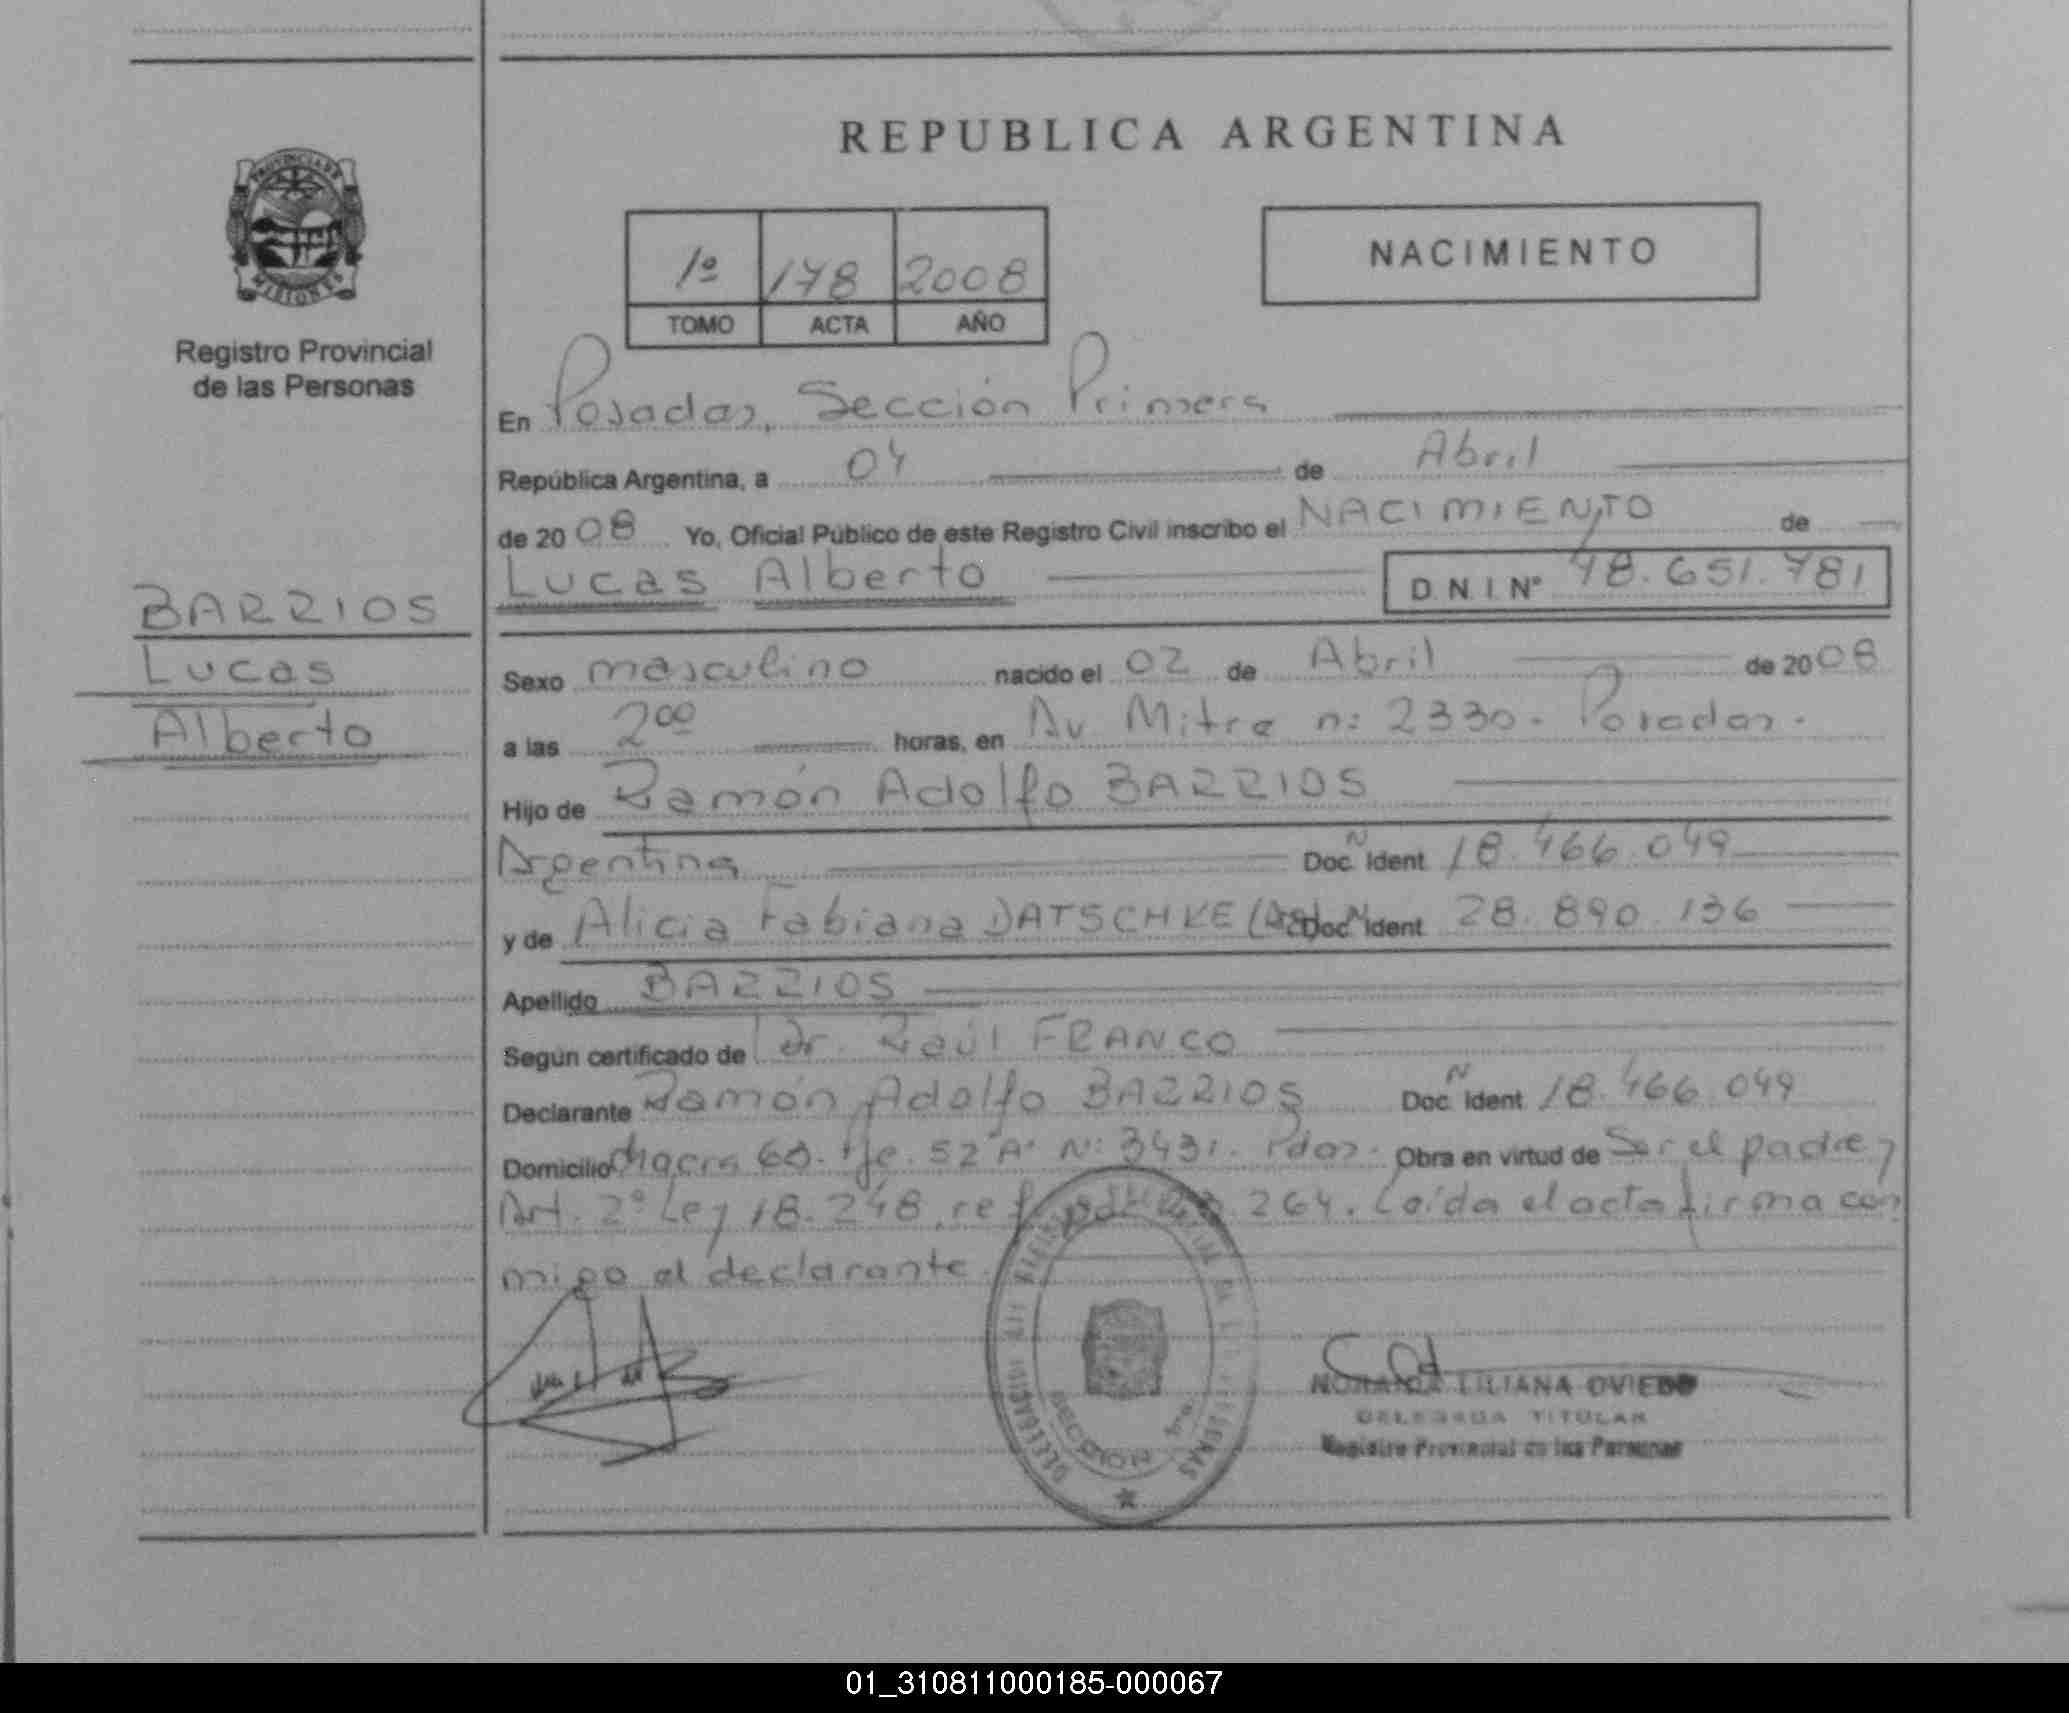 REPUBLICA ARGENTINA
PROVINCIA DE
MISIONES
Registro Provincial
de las Personas
1º 178 2008
TOMO ACTA AÑO
NACIMIENTO
En Posadas, Sección Primera
República Argentina, a 04 de Abril
de 2008 Yo, Oficial Público de este Registro Civil inscribo el NACIMIENTO de
Lucas Alberto D.N.I.Nº 48.651.781
BARRIOS
Lucas
Alberto
Sexo masculino nacido el 02 de Abril de 2008
a las 2⁰⁰ horas, en Av Mitre n: 2330- Posadas.
Hijo de Ramón Adolfo BARRIOS
Argentina Doc. N Ident 18.466.049
y de Alicia Fabiana DATSCHKE (Arg) Doc. N Ident 28.890.136
Apellido BARRIOS
Según certificado de Dr. Raúl FRANCO
Declarante Ramón Adolfo BARRIOS Doc. N Ident 18.466.049
Domicilio Chacra 60. Pje. 52 "A" N: 3431. Pdas. Obra en virtud de Ser el padre y
Art. 2º Ley 18.248, 264. Leída el acta firma con
migo el declarante.
DELEGACION DEL REGISTRO PROVINCIAL DE LAS PERSONAS
SECCION 1ra.
LILIANA OVIEDO
DELEGADA TITULAR
Registro Provincial de las Personas
01_310811000185-000067